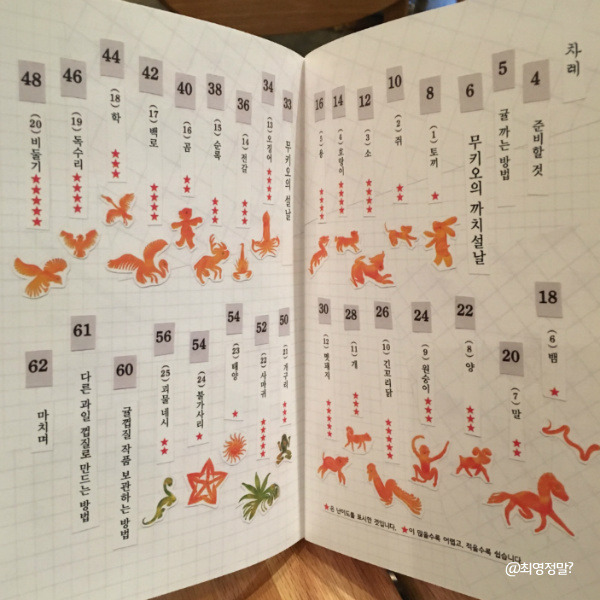 차례
4 준비할 것
5 귤 까는 방법
6 무키오의 까치설날
8 (1) 토끼 ★
10 (2) 쥐 ★★
12 (3) 소 ★★★★
14 (4) 호랑이 ★★★★★
16 (5) 용 ★★★★
18 (6) 뱀 ★
20 (7) 말 ★★
22 (8) 양 ★★★
24 (9) 원숭이 ★★★
26 (10) 긴꼬리닭 ★★★★★
28 (11) 개 ★★
30 (12) 멧돼지 ★★★★
★은 난이도를 표시한 것입니다. ★이 많을수록 어렵고, 적을수록 쉽습니다.
33 무키오의 설날
34 (13) 오징어 ★★★★
36 (14) 전갈 ★★★★
38 (15) 순록 ★★★★★
40 (16) 곰 ★★
42 (17) 백로 ★★★★
44 (18) 학 ★★★
46 (19) 독수리 ★★★★
48 (20) 비둘기 ★★★★★
50 (21) 개구리 ★★★★
52 (22) 사마귀 ★★★★★
54 (23) 태양 ★
54 (24) 불가사리 ★
56 (25) 괴물 네시 ★★
60 귤껍질 작품 보관하는 방법
61 다른 과일 껍질로 만드는 방법
62 마치며
@최영정말?